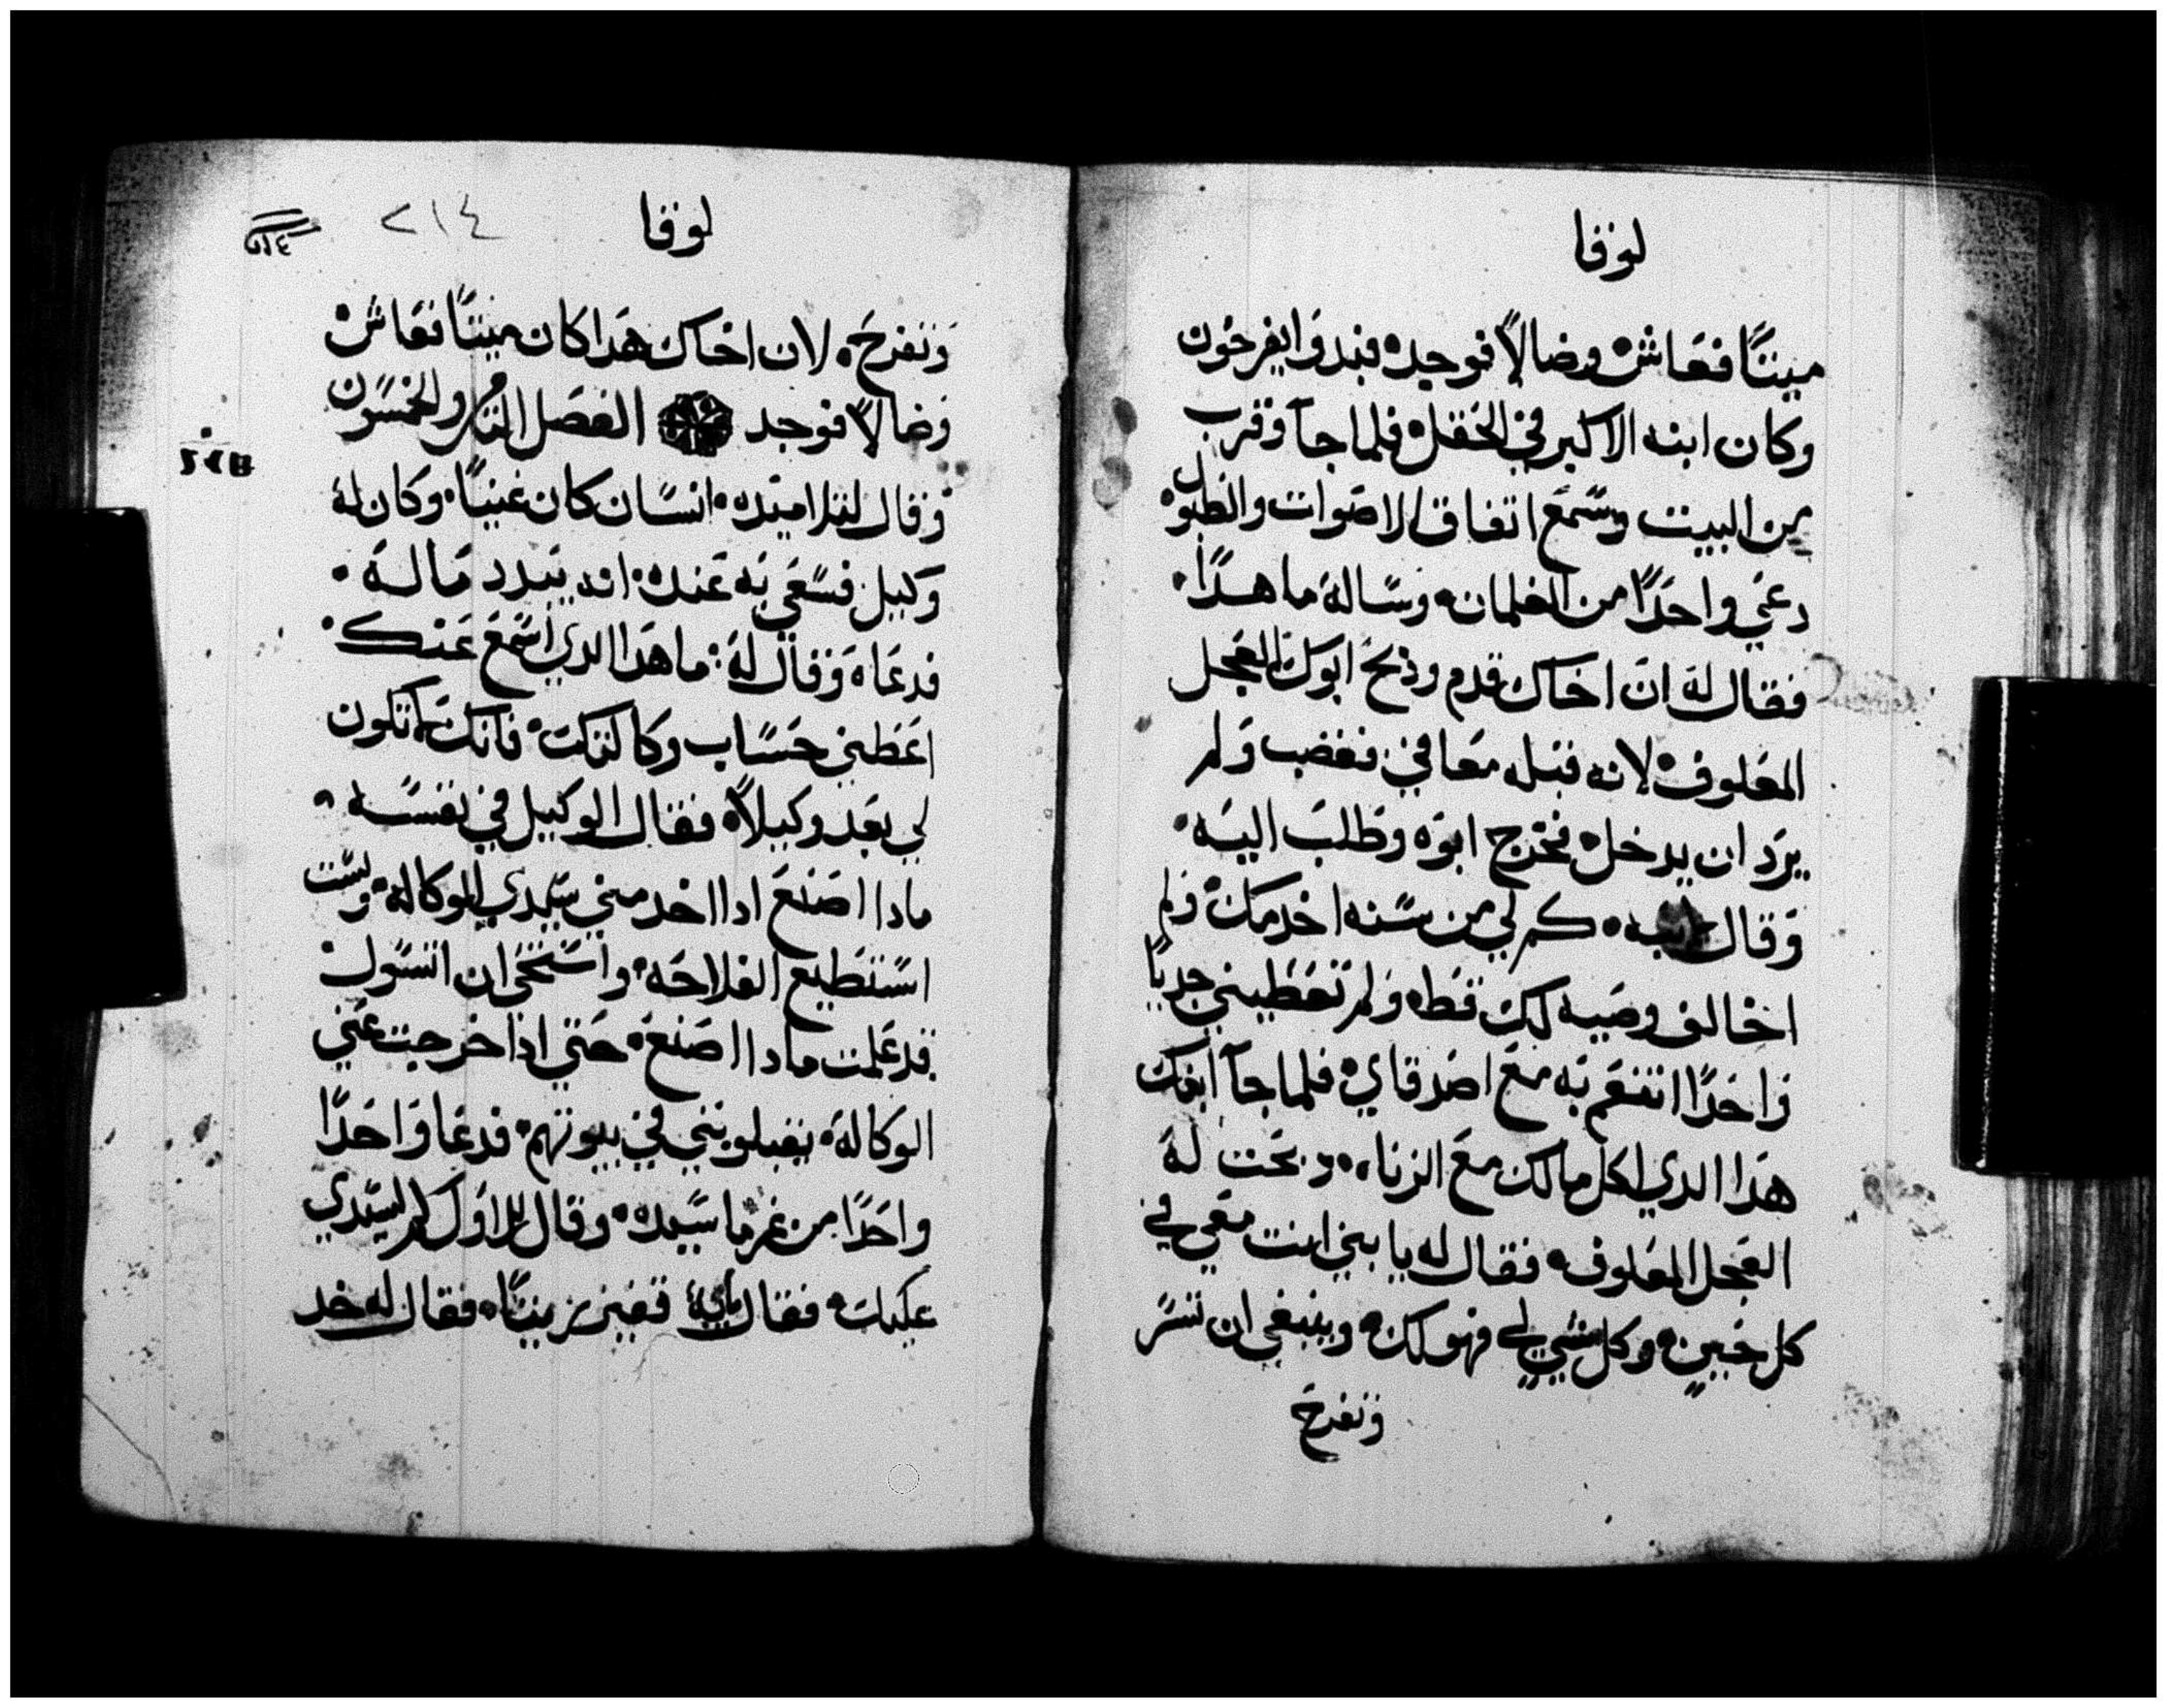 لوقا
ميتًا فعاش وضالًا فوجد فبدوا يفرحون
وكان ابنه الاكبر في الحقل فلما جآ وقرب
من البيت وسمع اتفاق الاصوات والطبول
دعي واحدًا من الغلمان وساله ما هدا
فقال له ان اخاك قدم وذبح ابوك العجل
المعلوف لانه قبله معافي فغضب ولم
يرد ان يدخل فخرج ابوه وطلب اليه
وقال كم لي من سنه اخدمك ولم
اخالف وصيه لك قط ولم تعطيني جديًا
واحدًا اتنعم به مع اصدقاي فلما جآ ابنك
هدا الدي اكل مالك مع الزناه دبحت له
العجل المعلوف فقال له يا بني انت معي في
كل حين وكل شي لي فهو لك وينبغي ان نسر
ونفرح
لوقا
٢١٤
ونفرح لان اخاك هدا كان ميتًا فعاش
وضالًا فوجد الفصل التامن والخمسون
وقال لتلاميده انسان كان غنيًا وكان له
وكيل فسعي به عنده انه يبدد ماله
فدعاه وقال له ما هدا الدي اسمع عنك
اعطني حساب وكالتك فانك لم تكون
لي بعد وكيلًا فقال الوكيل في نفسه
مادا اصنع ادا اخد مني سيدي الوكاله ولست
استطيع الفلاحه واستحي ان اتسول
قد علمت مادا اصنع حتي ادا خرجت عني
الوكاله يقبلونني في بيوتهم فدعا واحدًا
واحدًا من غرما سيده وقال للاول كم لسيدي
عليك فقال مايه قفيز زيتًا فقال له خد